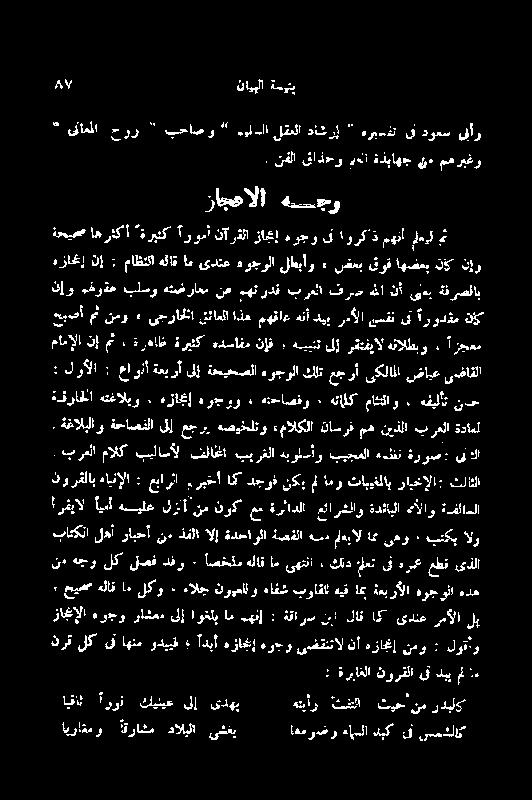 يتيمة البيان ٨٧
وأبي سعود في تفسيره " إرشاد العقل السليم " وصاحب " روح المعاني "
وغيرهم من جهابذة العلم وحذاق الفن .
وجـــه الاعجاز
ثم ليعلم أنهم ذكروا في وجوه إعجاز القرآن أموراً كثيرة أكثرها صحيحة
وإن كان بعضها فوق بعض ، وأبطل الوجوه عندي ما قاله النظام : إن إعجازه
بالصرفة يعني أن الله صرف العرب قدرتهم عن معارضته وسلب عقولهم وإن
كان مقدوراً في نفس الأمر بيد أنه عاقهم هذا العائق الخارجي ، ومن ثم أصبح
معجزاً ، وبطلانه لايفتقر إلى تنبيه ، فإن مفاسده كثيرة ظاهرة ، ثم إن الإمام
القاضي عياض المالكي أرجع تلك الوجوه الصحيحة إلى أربعة أنواع : الأول :
حسن تأليفه ، والتئام كلماته ، وفصاحته ، ووجوه إيجازه ، وبلاغته الخارقة
لعادة العرب الذين هم فرسان الكلام، وتلخيصه يرجع إلى الفصاحة والبلاغة .
الثاني : صورة نظمه العجيب وأسلوبه الغريب المخالف لأساليب كلام العرب .
الثالث : الإخبار بالمغيبات وما لم يكن فوجد كما أخبر . الرابع : الإنباء بالقرون
السالفة والأمم البائدة والشرائع الداثرة مع كون من أنزل عليه أمياً لايقرأ
ولا يكتب ، وهي مما لايعلم منه القصة الواحدة إلا الفذ من أحبار أهل الكتاب
الذي قطع عمره في تعلم ذلك ، انتهى ما قاله ملخصاً . وقد فصل كل وجه من
هذه الوجوه الأربعة بما فيه للقلوب شفاء وللعيون جلاء ، وكل ما قاله صحيح ،
بل الأمر عندي كما قال ابن سراقة : إنهم ما بلغوا إلى معشار وجوه الإعجاز
وأقول : ومن إعجازه أن لاتنقضي وجوه إعجازه أبداً ، فيبدو منها في كل قرن
ما لم يبد في القرون الغابرة :
كالبدر من حيث التفتّ رأيته يهدي إلى عينيك نوراً ثاقبا
كالشمس في كبد السماء وضوءها يغشى البلاد مشارقاً ومغاربا